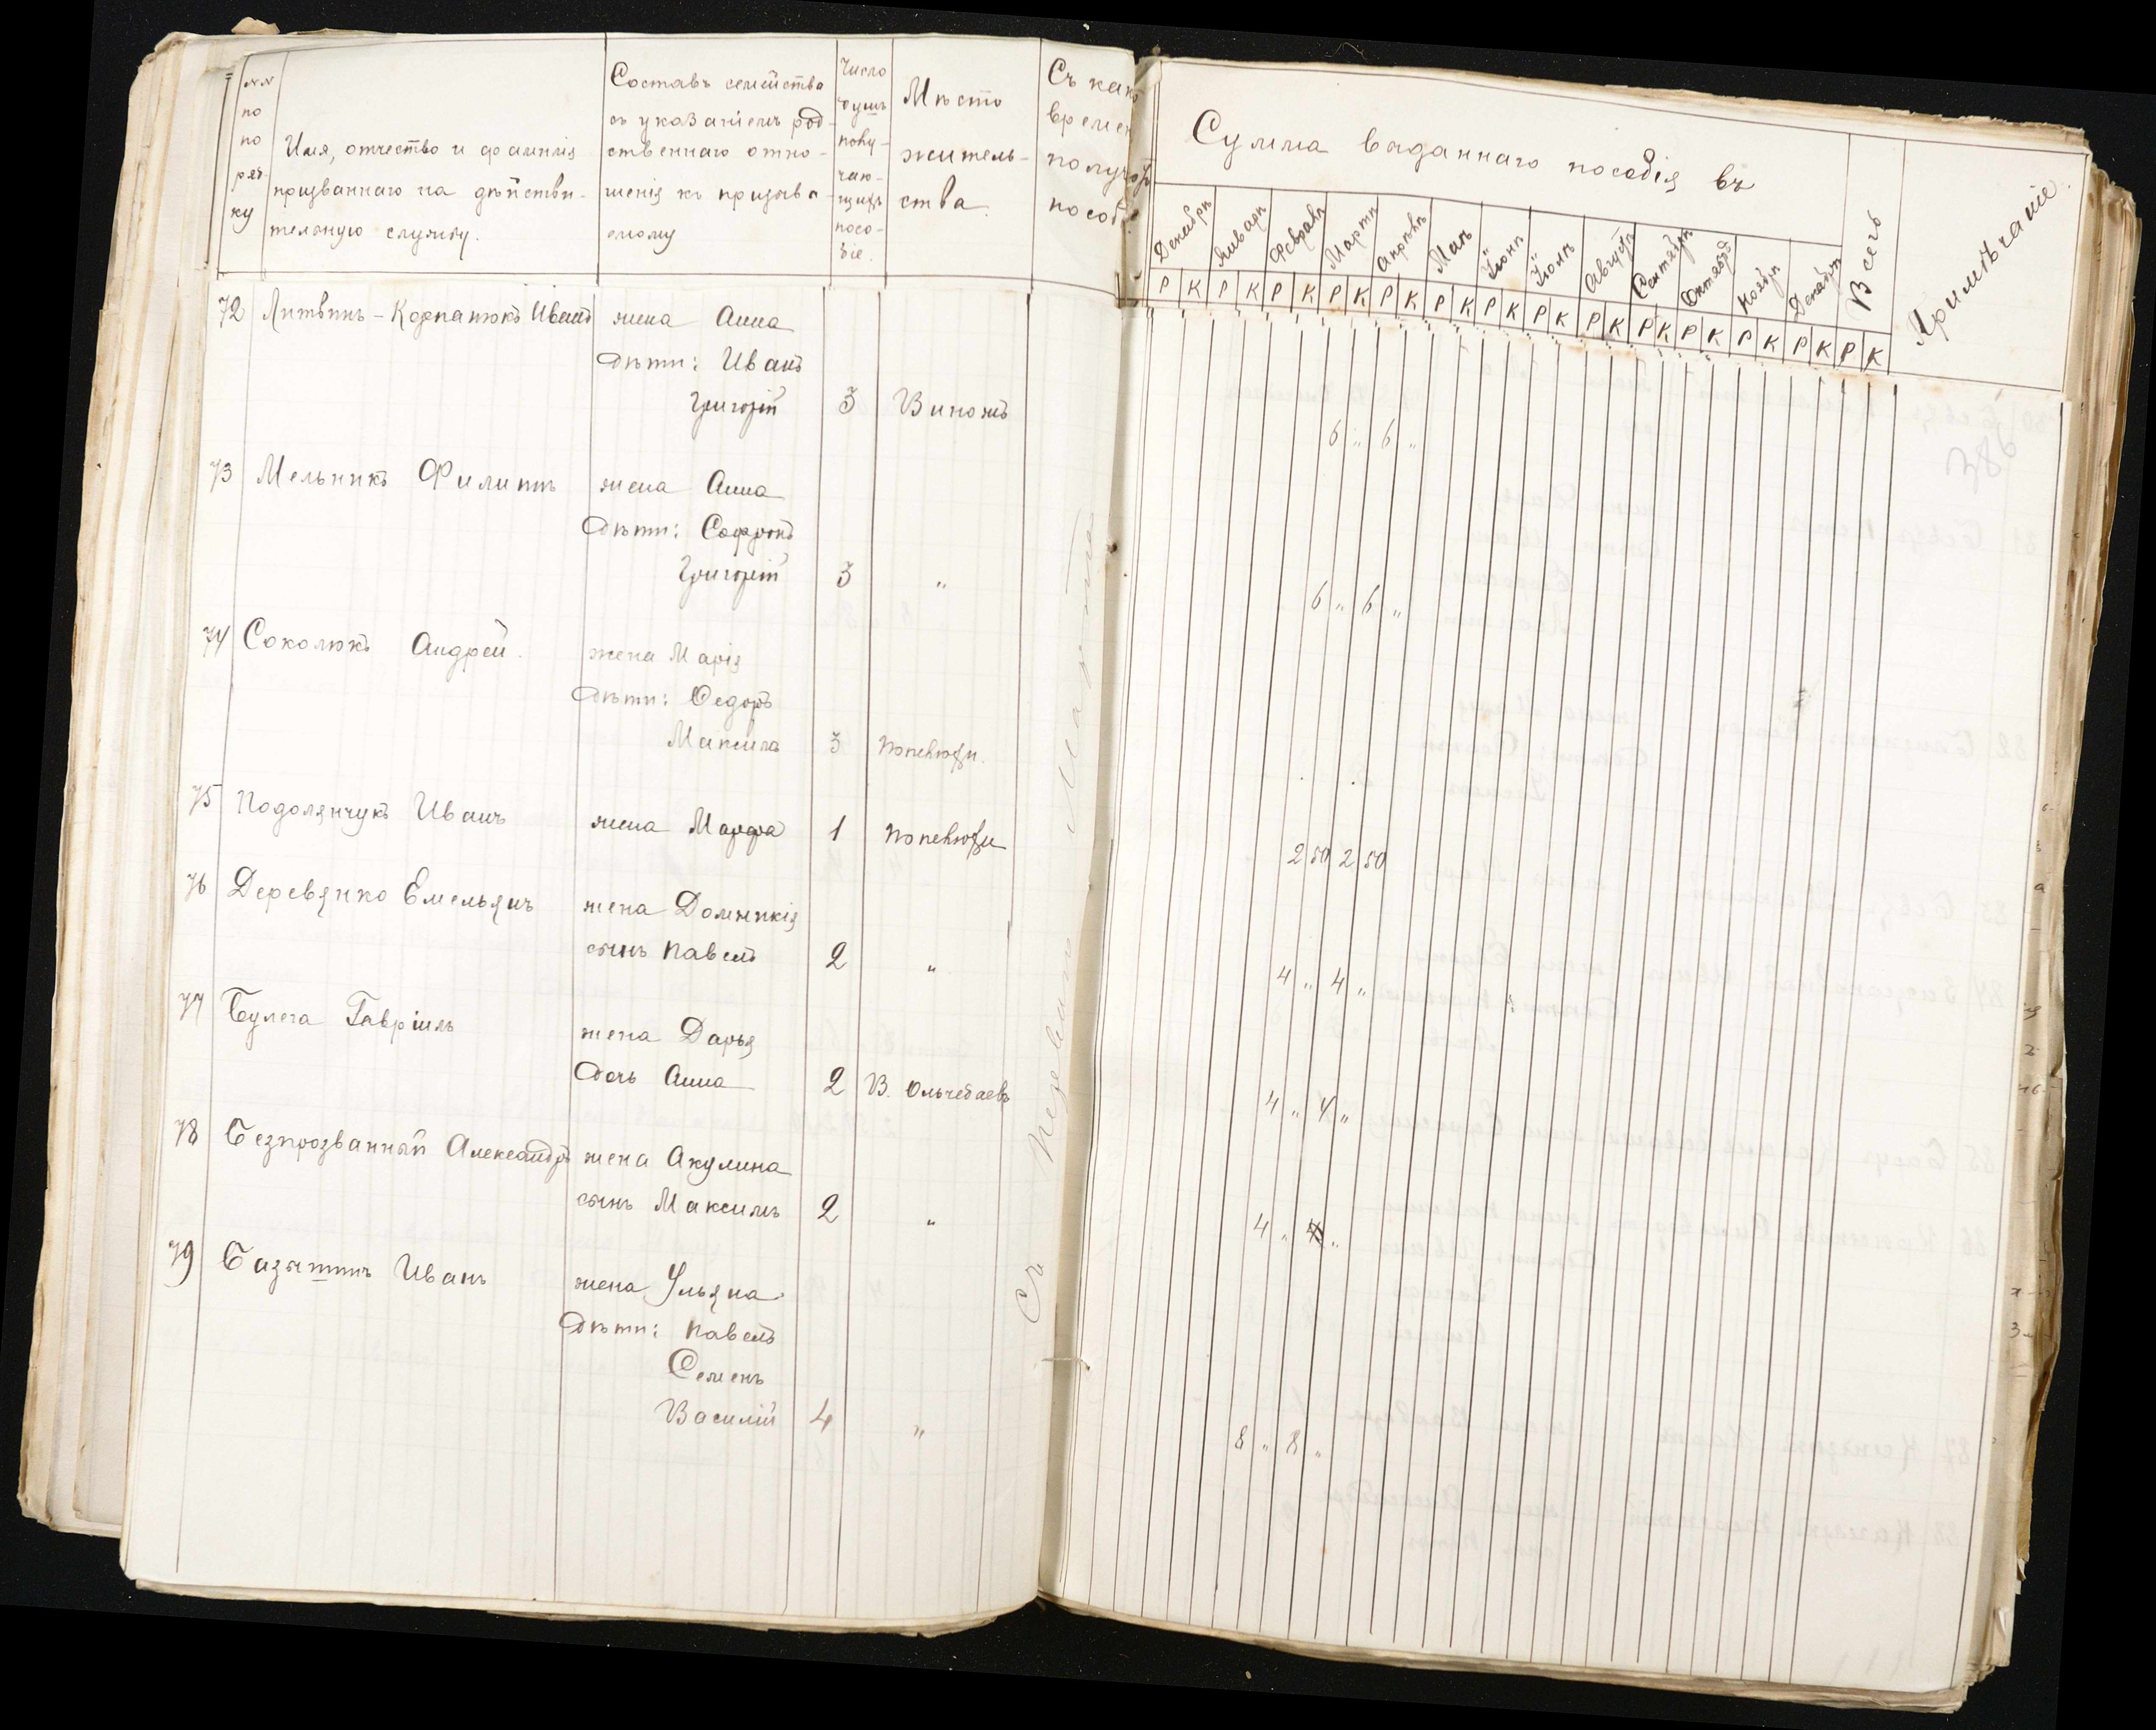 №№
по
по
ряд-
ку
Имя, отчество и фамилія
призваннаго на дѣйстви-
тельную службу.
Составъ семейства
съ указаніемъ род-
ственнаго отно-
шенія къ призыва-
емому
Число
душъ
полу-
чаю-
щихъ
посо-
біе.
Мѣсто
житель-
ства.
Съ како
времен
получ
пособ
Сумма выданнаго пособія въ
Декабрѣ Январѣ Февралѣ Мартѣ Апрѣлѣ Маѣ Іюнѣ Іюлѣ Августѣ Сентябрѣ Октябрѣ Ноябрѣ Декабрѣ Всего
Р К Р К Р К Р К Р К Р К Р К Р К Р К Р К Р К Р К Р К Р К
Примѣчаніе
38
72 Литвинъ-Корпанюкъ Иванъ жена Анна
Дѣти: Иванъ
Григорій 3 Виножъ 6 " 6 "
73 Мельникъ Филиппъ жена Анна
Дѣти: Софронъ
Григорій 3 " 6 " 6 "
74 Соколюкъ Андрей. жена Марія
Дѣти: Ѳедоръ
Максимъ 3
75 Подолянчукъ Иванъ жена Марфа 1 2 50 2 50
76 Деревянко Емельянъ жена Домникія
сынъ Павелъ 2 " 4 " 4 "
77 Булега Гавріилъ жена Дарья
Дочь Анна 2 В. Ольчедаевъ 4 " 4 "
78 Безпрозванный Александръ жена Акулина
сынъ Максимъ 2 " 4 " 4 "
79 Иванъ жена Ульяна
Дѣти: Павелъ
Семенъ
Василій 4 " 8 " 8 "
Съ